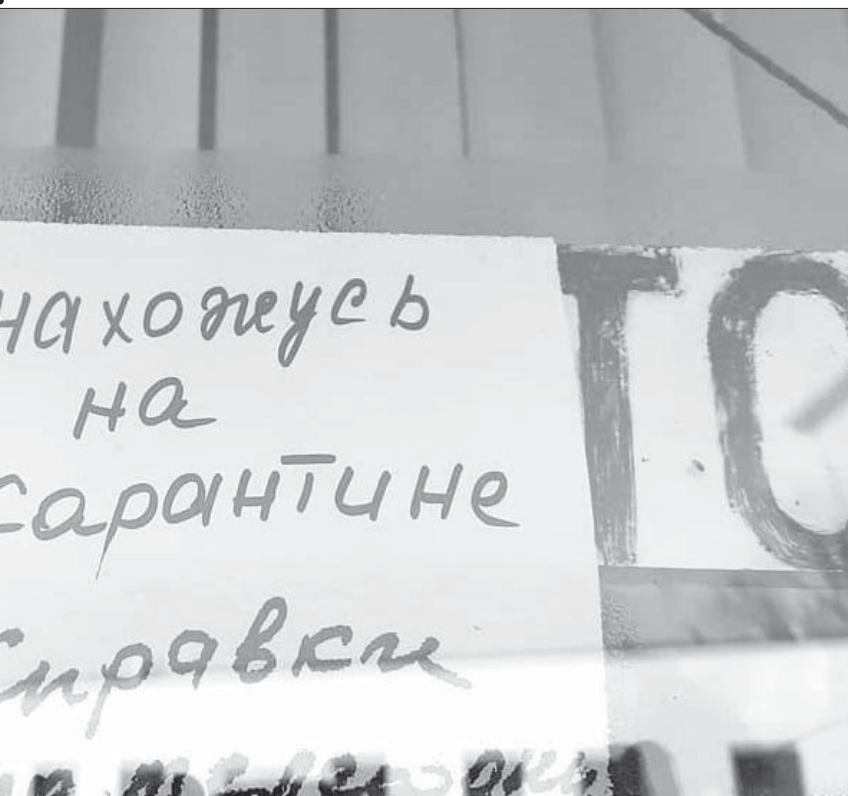 нахожусь ТО
на
карантине
справки